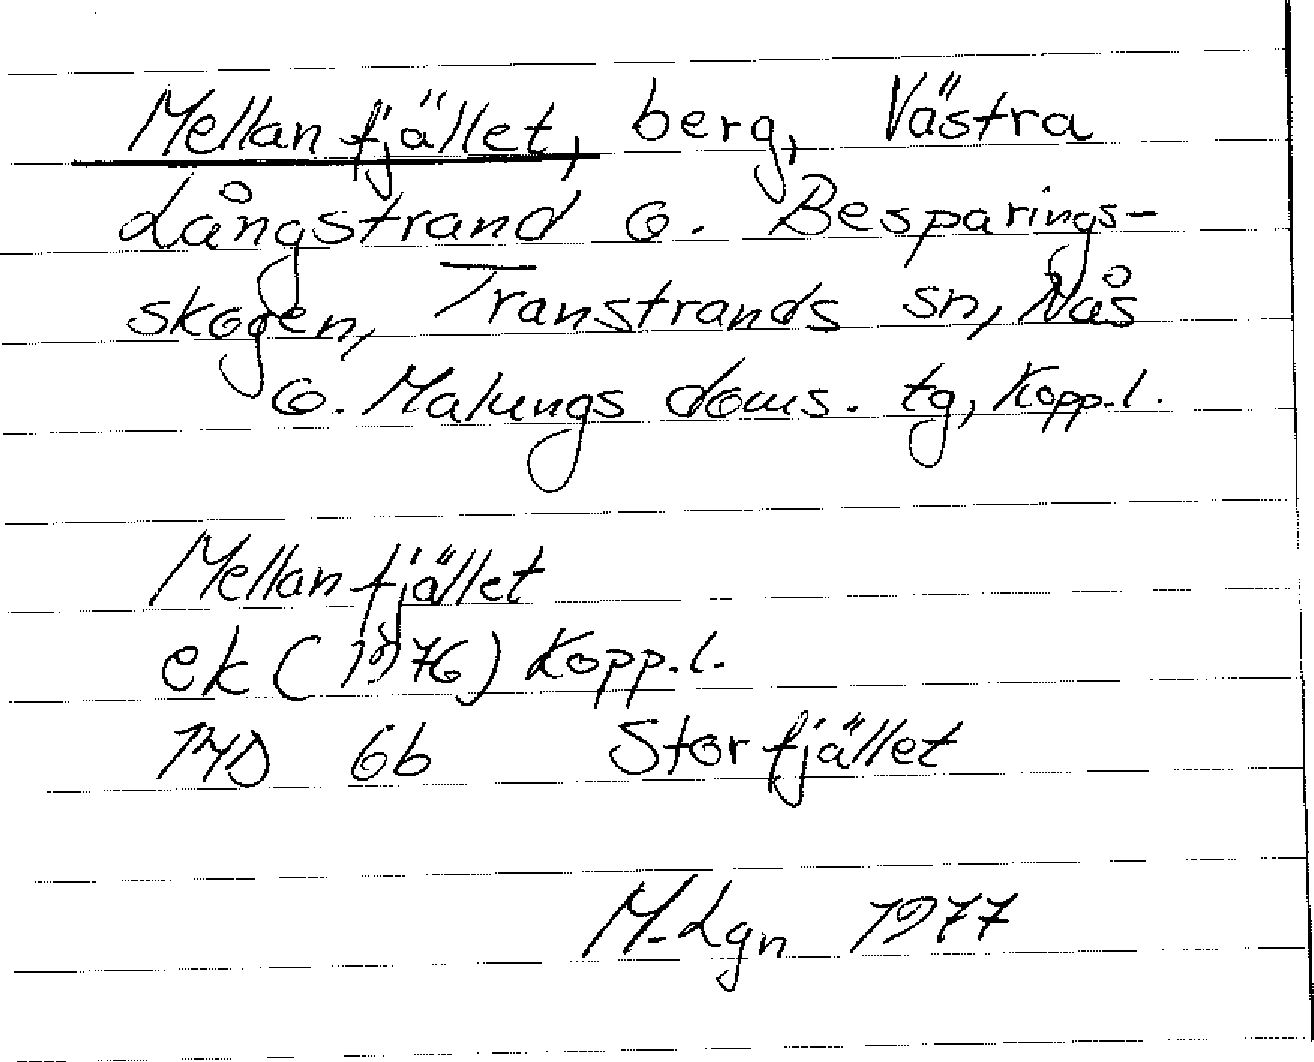 Mellanfjället, berg, Västra
Långstrand o. Besparings-
skogen, Transtrands sn, Nås
o. Malungs doms. tg, Kopp.l.
Mellanfjället
ek (1976) Kopp.l.
14D 6b Storfjället
M-Lgn 1977